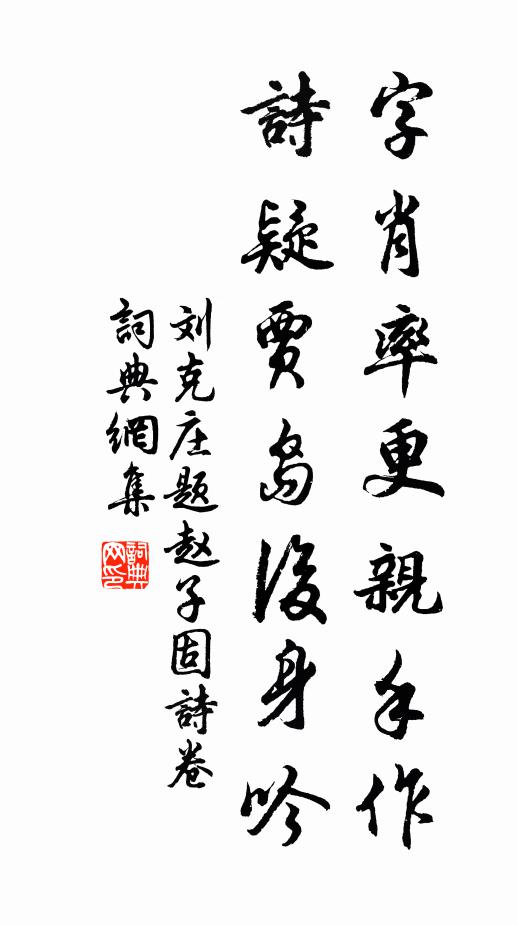 字肖率更親手作
詩疑賈島後身吟
刘克庄题赵子固詩卷
詞典網集
詞典网印